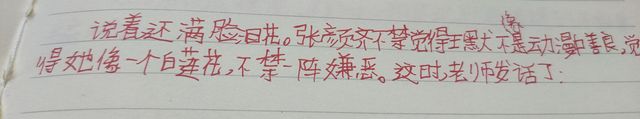 说着还满脸泪花。张彦齐不禁觉得王默犬不是像动漫中善良,觉
得她像一个白莲花,不禁一阵嫌恶。这时,老师发话了: